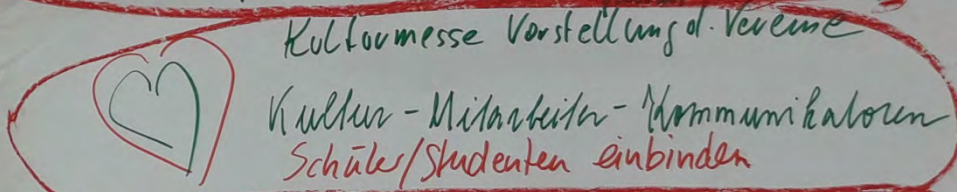 Kulturmesse Vorstellung d. Vereine
Kultur-Mitarbeiter-Kommunikatoren
Schüler/Studenten einbinden